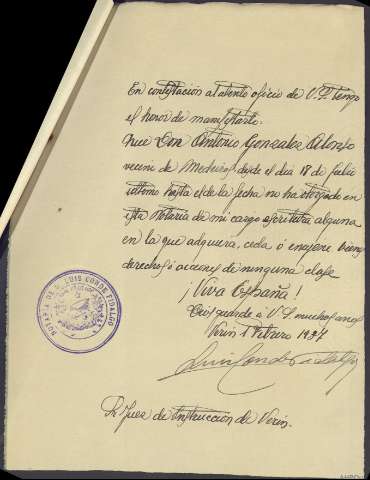 En contestación al atento oficio de V.S. tengo
el honor de manifestarle:
Que Don Antonio Gonzalez Alonso
vecino de Medeiros, desde el dia 18 de julio
ultimo hasta el de la fecha no ha otorgado en
esta Notaria de mi cargo escritura alguna
en la que adquiera, ceda ó enajene bienes
derechos ó acciones de ninguna clase
¡Viva España!
Dios guarde á V.S. muchos anos
Verin 1 Febrero 1937
Luis Conde Fidalgo
NOTARIA DE D. LUIS CONDE FIDALGO
Sr Juez de Instruccion de Verin.